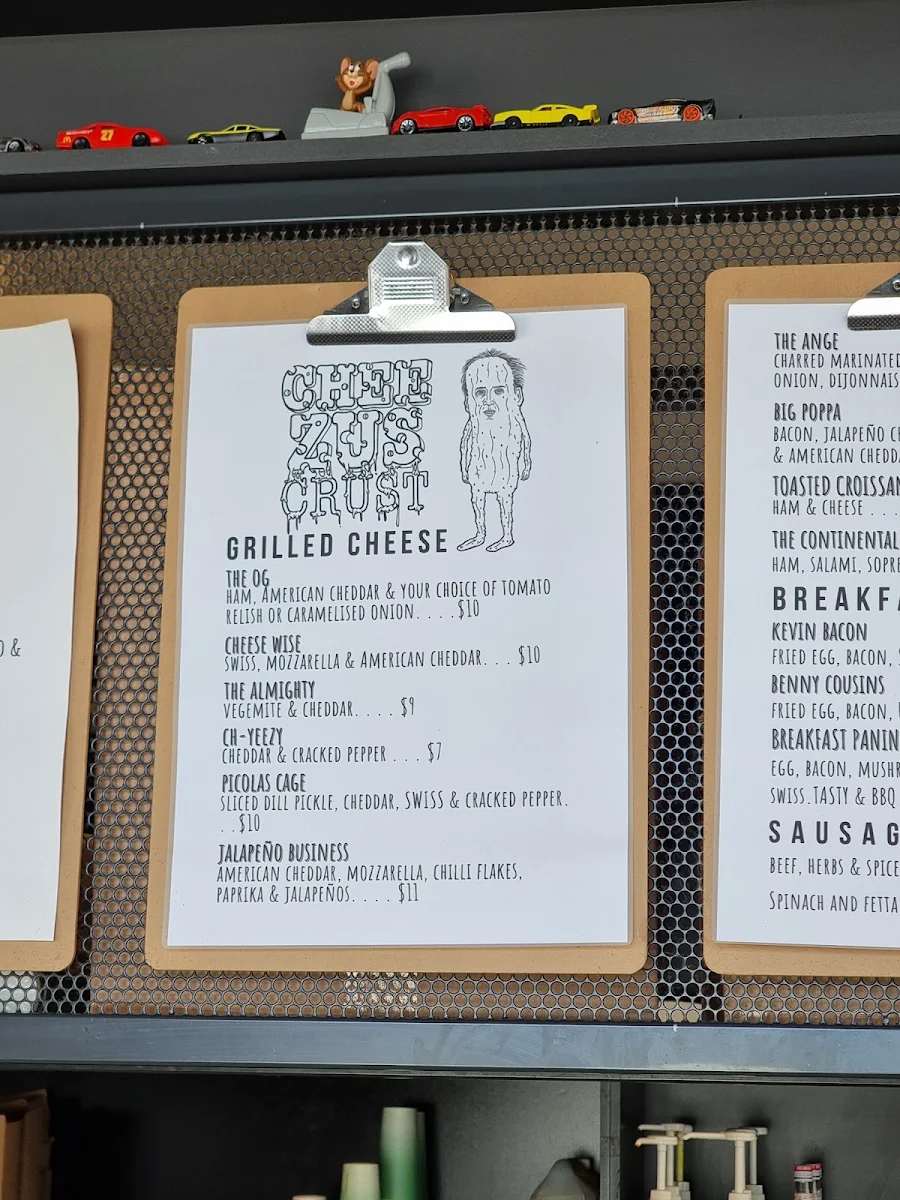 27
O &
CHEE
ZUS
CRUST
GRILLED CHEESE
THE OG
HAM, AMERICAN CHEDDAR & YOUR CHOICE OF TOMATO
RELISH OR CARAMELISED ONION. . . . $10
CHEESE WISE
SWISS, MOZZARELLA & AMERICAN CHEDDAR. . . $10
THE ALMIGHTY
VEGEMITE & CHEDDAR. . . . . $9
CH-YEEZY
CHEDDAR & CRACKED PEPPER . . . . $7
PICOLAS CAGE
SLICED DILL PICKLE, CHEDDAR, SWISS & CRACKED PEPPER.
. . $10
JALAPEÑO BUSINESS
AMERICAN CHEDDAR, MOZZARELLA, CHILLI FLAKES,
PAPRIKA & JALAPEÑOS. . . . . $11
THE ANGE
CHARRED MARINATED
ONION, DIJONNAIS
BIG POPPA
BACON, JALAPEÑO
& AMERICAN CHEDD
TOASTED CROISSAN
HAM & CHEESE . . . .
THE CONTINENTAL
HAM, SALAMI, SOPRE
BREAKFA
KEVIN BACON
FRIED EGG, BACON,
BENNY COUSINS
FRIED EGG, BACON,
BREAKFAST PANIN
EGG, BACON, MUSHR
SWISS.TASTY & BBQ
SAUSAG
BEEF, HERBS & SPICE
SPINACH AND FETTA